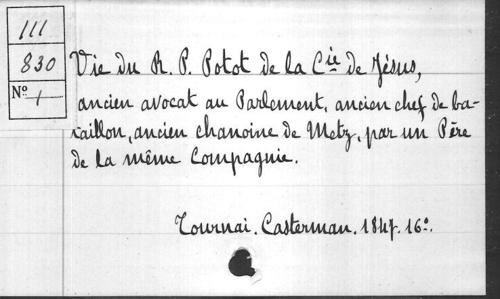 111
830
Nº 1
Vie du R. P. Potot de la Cie de Jésus,
ancien avocat au Parlement, ancien chef de ba-
taillon, ancien chanoine de Metz, par un Père
de la même Compagnie.
Tournai. Casterman. 1847. 16º.